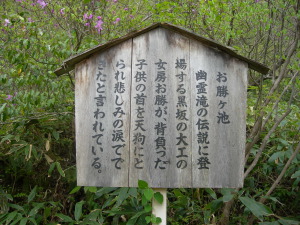 お勝ヶ池
幽霊滝の伝説に登
場する黒坂の大工の
女房お勝が、背負った
子供の首を天狗にと
られ悲しみの涙でで
きたと言われている。